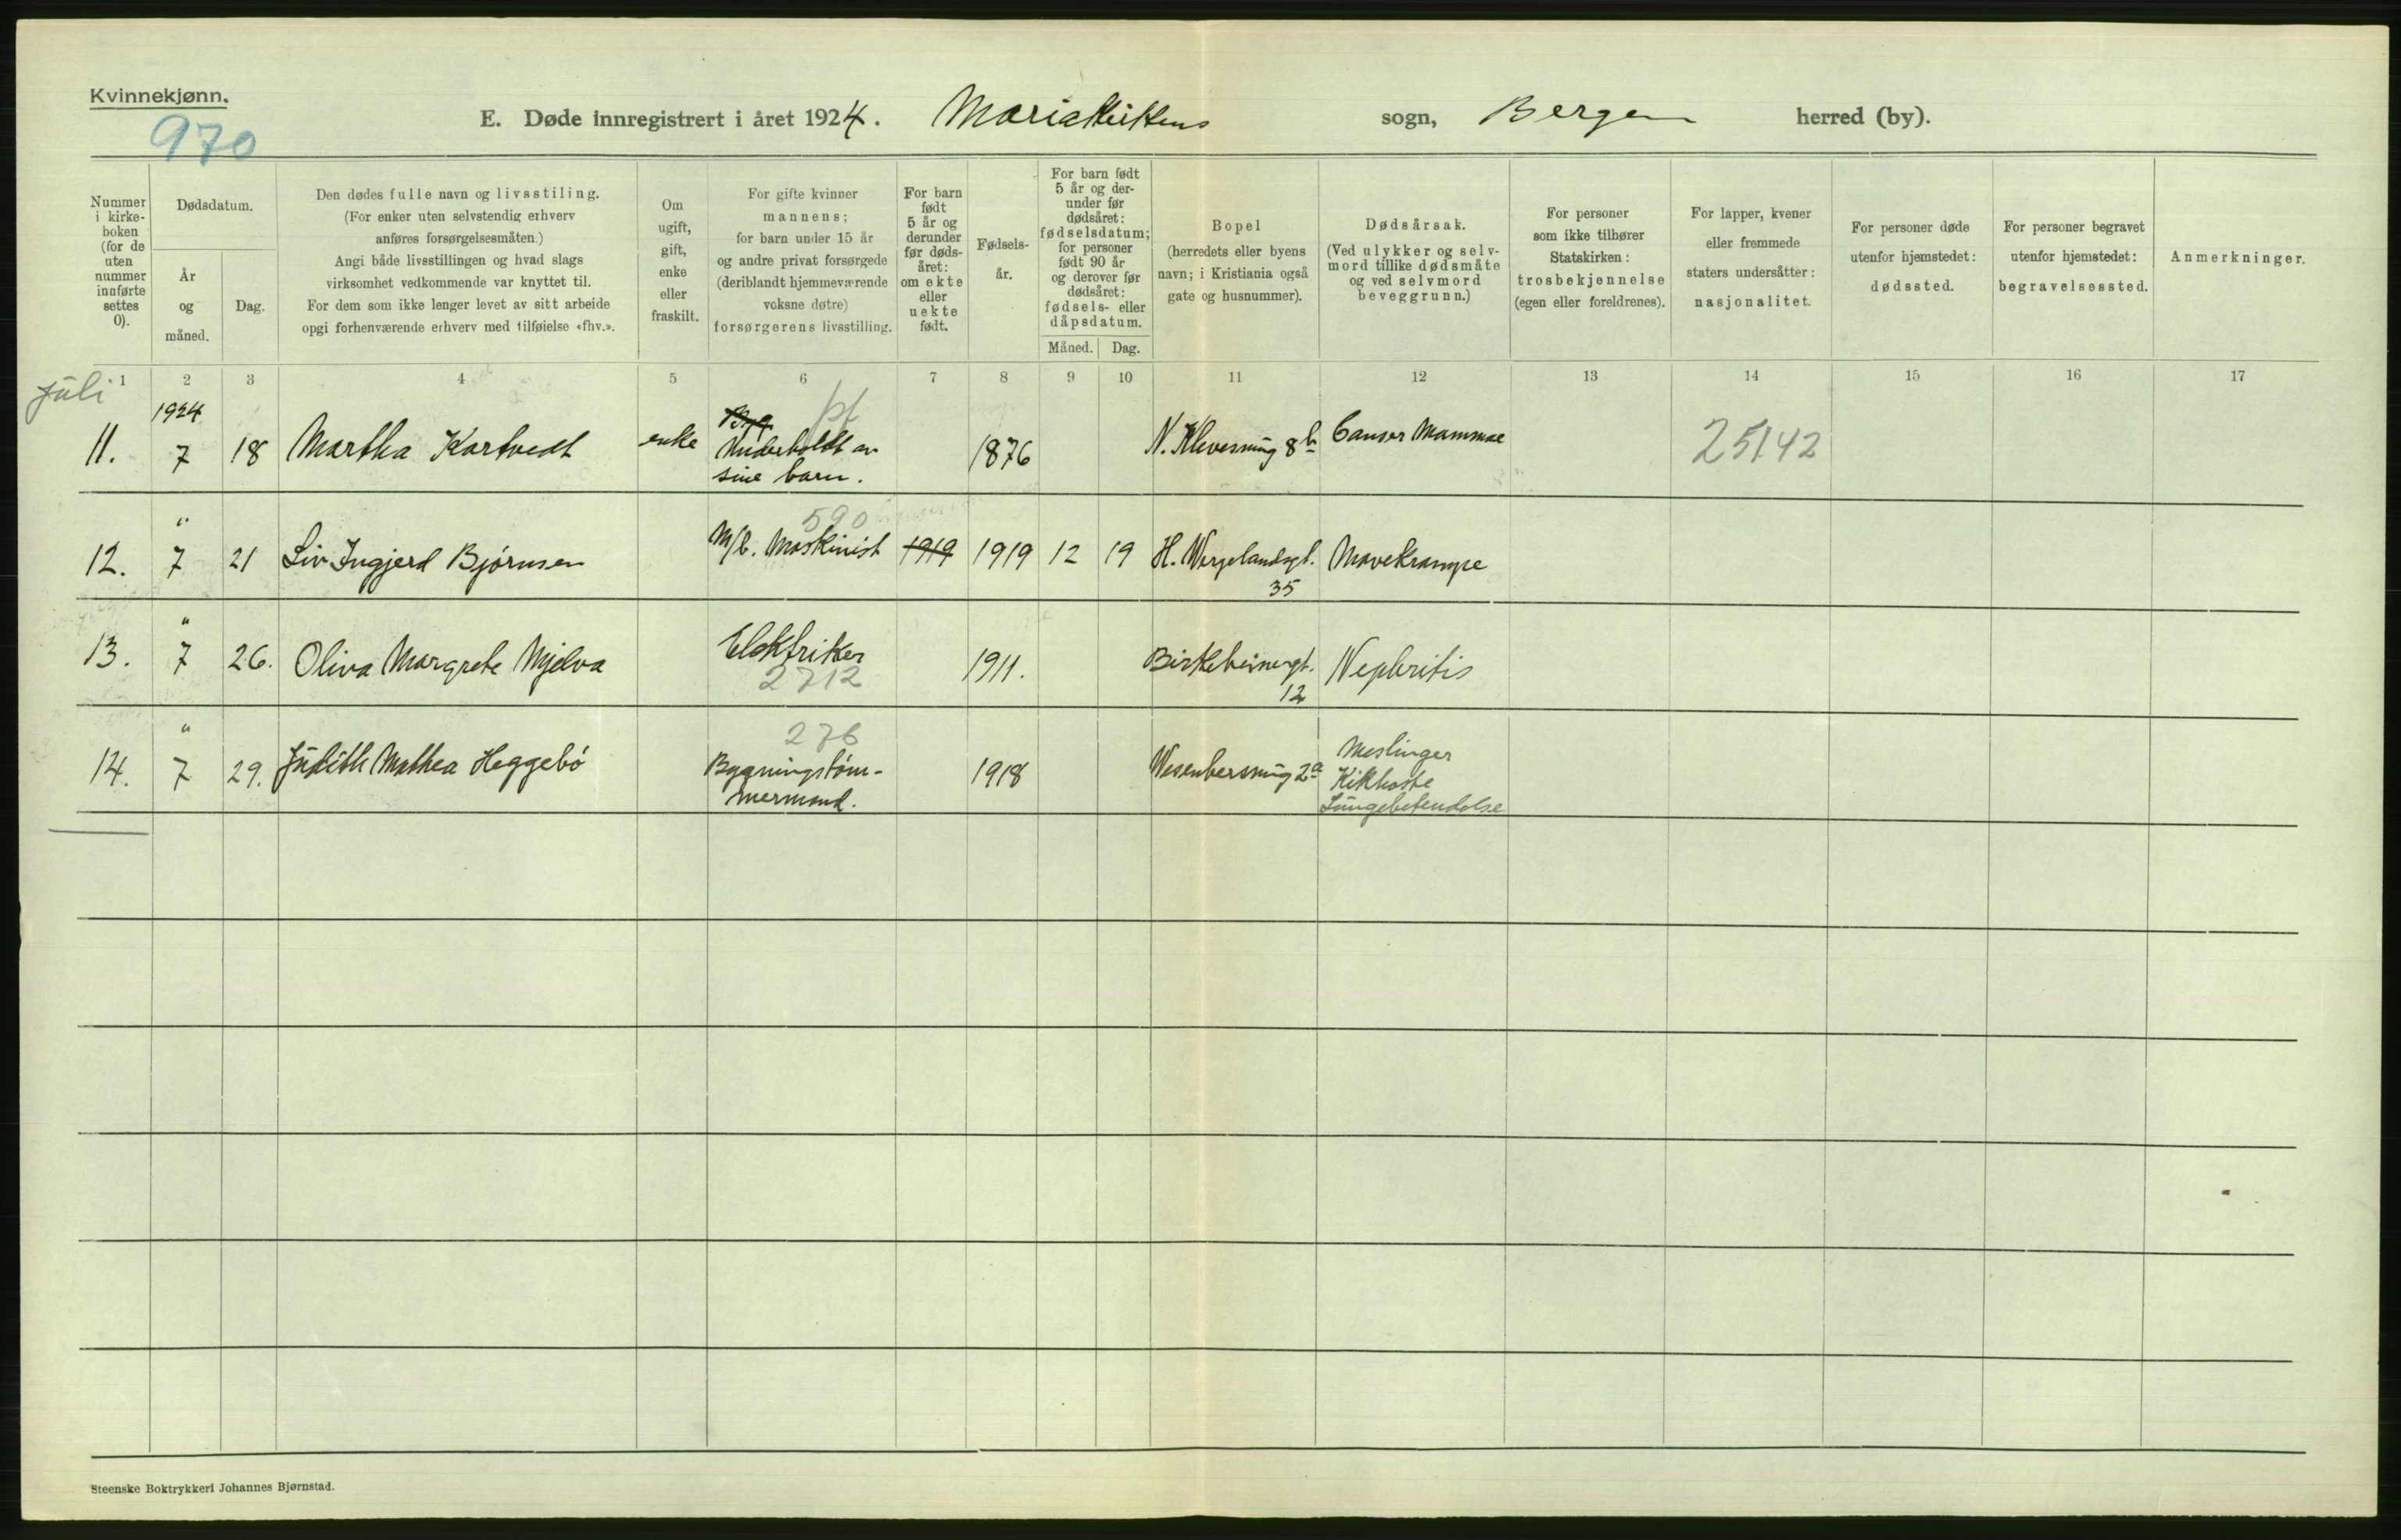 Kvinnekjønn.
970
E. Døde innregistrert i året 1924. Mariakirkens sogn, Bergen herred (by).
Nummer i kirke- boken (for de uten nummer innførte settes 0).
Dødsdatum.
År og måned.
Dag.
Den dødes fulle navn og livsstiling.
(For enker uten selvstendig erhverv
anføres forsørgelsesmåten.)
Angi både livsstillingen og hvad slags
virksomhet vedkommende var knyttet til.
For dem som ikke lenger levet av sitt arbeide
opgi forhenværende erhverv med tilføielse «fhv.».
Om
ugift,
gift,
enke
eller
fraskilt.
For gifte kvinner
mannens;
for barn under 15 år
og andre privat forsørgede
(deriblandt hjemmeværende
voksne døtre)
forsørgerens livsstilling.
For barn
født
5 år og
derunder
før døds-
året:
om ekte
eller
uekte
født.
Fødsels-
år.
For barn født
5 år og der-
under før
dødsåret:
fødselsdatum;
for personer
født 90 år
og derover før
dødsåret:
fødsels- eller
dåpsdatum.
Måned. Dag.
Bopel
(herredets eller byens
navn; i Kristiania også
gate og husnummer).
Dødsårsak.
(Ved ulykker og selv-
mord tillike dødsmåte
og ved selvmord
beveggrunn.)
For personer
som ikke tilhører
Statskirken:
trosbekjennelse
(egen eller foreldrenes).
For lapper, kvener
eller fremmede
staters undersåtter:
nasjonalitet.
For personer døde
utenfor hjemstedet:
dødssted.
For personer begravet
utenfor hjemstedet:
begravelsessted.
Anmerkninger.
1 2 3 4 5 6 7 8 9 10 11 12 13 14 15 16 17
Juli
1924
pf
11. 7 18 Martha Kartvedt enke Underholdt av
sine barn.
1876 N. Klevesmug 8b Canser Mammae 25142
590
12. " 7 21 Liv Ingjerd Bjørnsen M/b. Maskinist 1919 1919 12 19 H. Wergelandsgt.
35
Mavekrampe
13. " 7 26. Oliva Margrete Mjelva Elektriker
2712
1911. Birkebeinergt.
12
Nephritis
276
14. " 7 29. Judith Mathea Heggebø Bygningstøm-
mermand.
1918 Wesenbersmug 2a Meslinger
Kikhoste
Lungebetendelse
Steenske Boktrykkeri Johannes Bjørnstad.